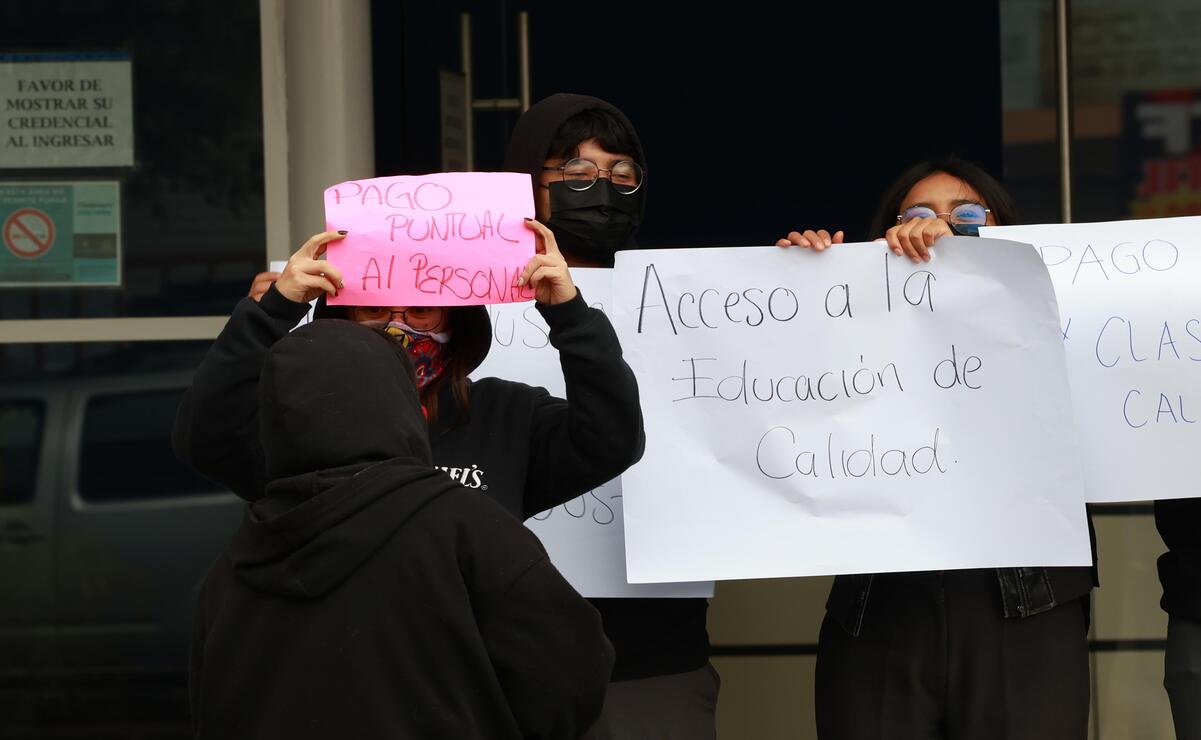 FAVOR DE
MOSTRAR SU
CREDENCIAL
AL INGRESAR
PAGO
PUNTUAL
Al PERSONAL
Acceso a la
Educación de
Calidad.
PAGO
Y CLAS
CAL